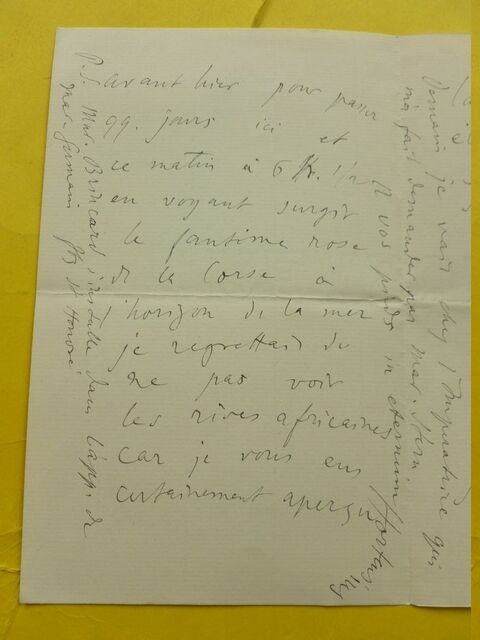 avant hier pour passer
qq. jours ici et
ce matin à 6 h. 1/2
en voyant surgir
le fantôme rose
de la Corse à
l'horizon de la mer
je regrettais de
ne pas voir
les rives africaines
car je vous eus
certainement aperçu
Demain je vais chez l'Impératrice qui
m'a fait demander par Mar. Stern
A vos pieds in eternum
P.S. Mar. Brincard s'installe dans l'app. de
Mar. Germain fbg St Honoré